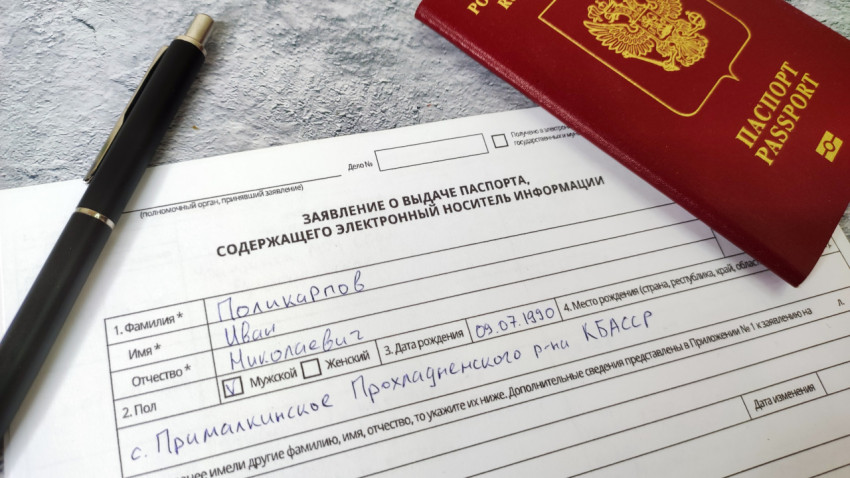 ПАСПОРТ
PASSPORT
Дело №
Получено в электрон
государственных и му
(полномочный орган, принявший заявление)
ЗАЯВЛЕНИЕ О ВЫДАЧЕ ПАСПОРТА,
СОДЕРЖАЩЕГО ЭЛЕКТРОННЫЙ НОСИТЕЛЬ ИНФОРМАЦИИ
1. Фамилия * Поликарпов
Имя * Иван
Отчество * Николаевич
2. Пол V Мужской Женский 3. Дата рождения 09.07.1990 4. Место рождения (страна, республика, край, облас
с. Прималкинское Прохладненского р-на КБАССР
нее имели другие фамилию, имя, отчество, то укажите их ниже. Дополнительные сведения представлены в Приложении № 1 к заявлению на л.
Дата изменения